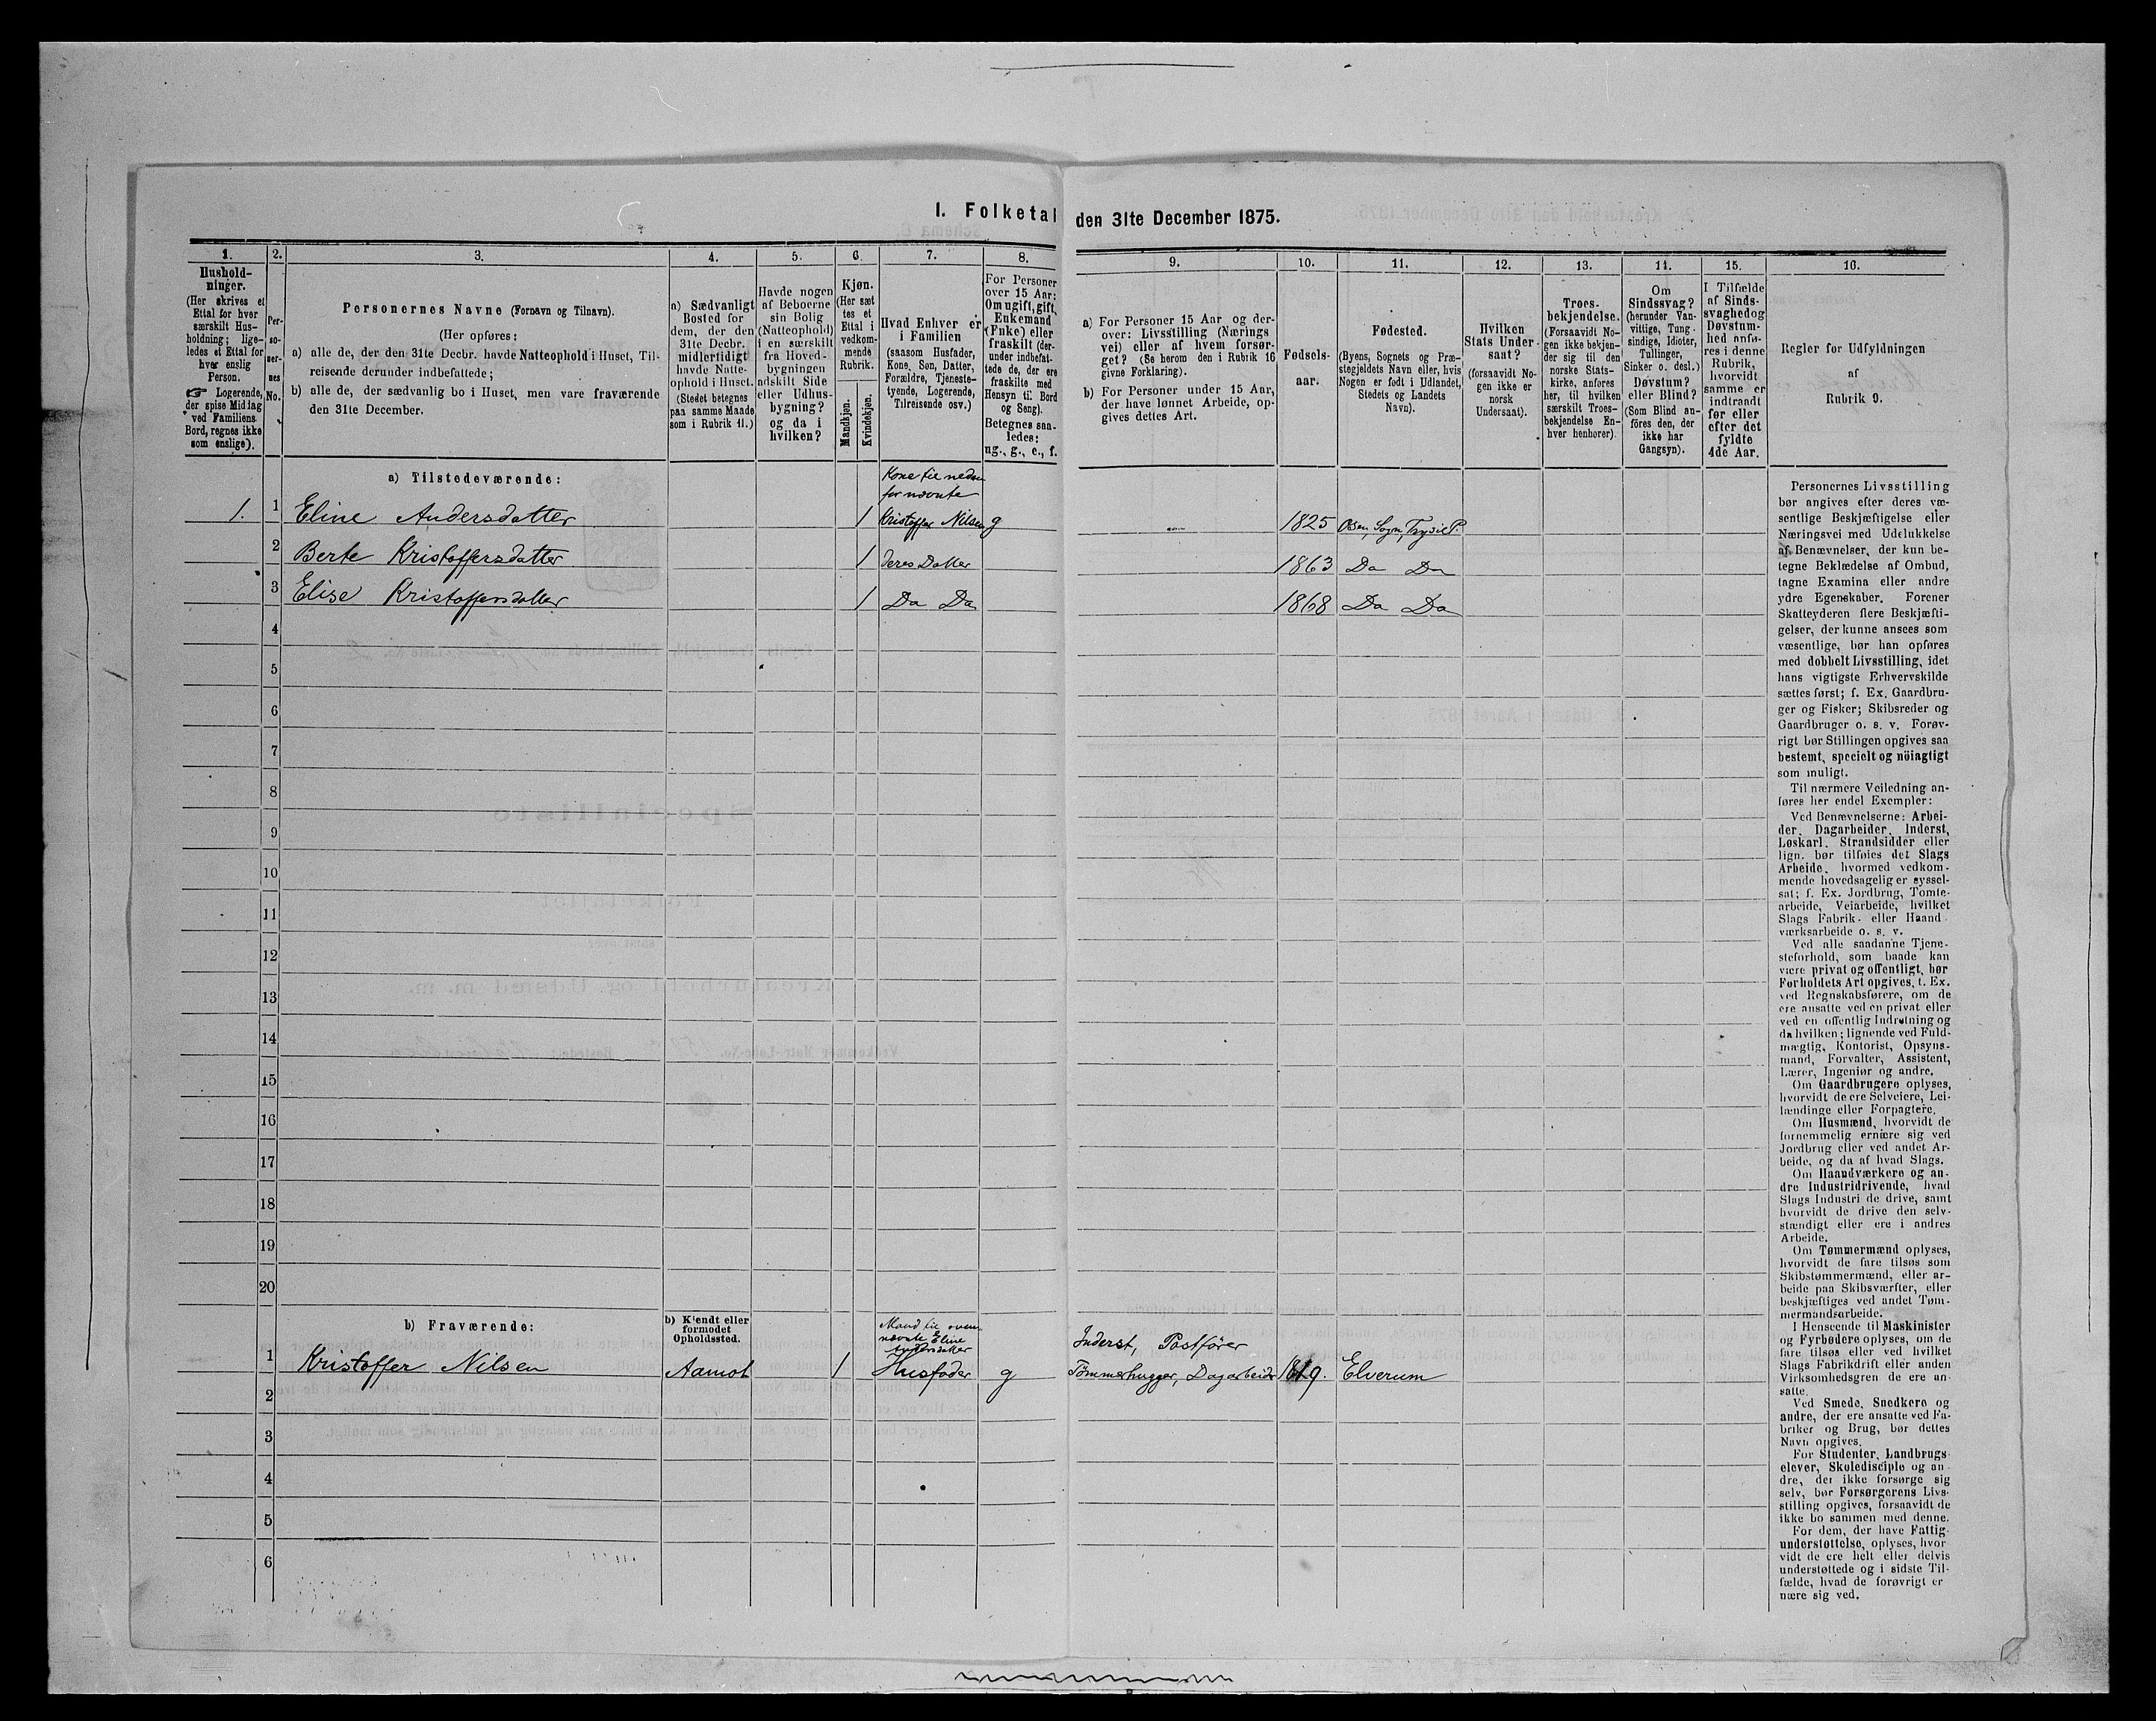 I. Folketal den 31te December 1875.
1.
Hushold-
ninger.
(Her skrives et
Ettal for hver
særskilt Hus-
holdning; lige-
ledes et Ettal for
hver enslig
Person.
☞ Logerende,
der spise Middag
ved Familiens
Bord, regnes ikke
som enslige).
2.
Per-
so-
ner-
nes
No.
3.
Personernes Navne (Fornavn og Tilnavn).
(Her opføres:
a) alle de, der den 31te Decbr. havde Natteophold i Huset, Til-
reisende derunder indbefattede;
b) alle de, der sædvanlig bo i Huset, men vare fraværende
den 31te December.
4.
a) Sædvanligt
Bosted for
dem, der den
31te Decbr.
midlertidigt
havde Natte-
ophold i Huset.
(Stedet betegnes
paa samme Maade
som i Rubrik 11.)
5.
Havde nogen
af Beboerne
sin Bolig
(Natteophold)
i en særskilt
fra Hoved-
bygningen
adskilt Side
eller Udhus-
bygning?
og da i
hvilken?
6.
Kjøn.
(Her sæt
tes et
Ettal i
vedkom-
mende
Rubrik.
Mandkjøn.
Kvindekjøn.
7.
Hvad Enhver er
i Familien
(saasom Husfader,
Kone, Søn, Datter,
Forældre, Tjeneste-
tyende, Logerende,
Tilreisende osv.)
8.
For Personer
over 15 Aar:
Om ugift, gift,
Enkemand
(Enke) eller
fraskilt (der-
under indbefat-
tede de, der ere
fraskilte med
Hensyn til Bord
og Seng).
Betegnes saa-
ledes:
ug., g., e., f.
9.
a) For Personer 15 Aar og der-
over: Livsstilling (Nærings
vei) eller af hvem forsør-
get? (Se herom den i Rubrik 16
givne Forklaring).
b) For Personer under 15 Aar,
der have lønnet Arbeide, op-
gives dettes Art.
10.
Fødsels-
aar.
11.
Fødested.
(Byens, Sognets og Præ-
stegjeldets Navn eller, hvis
Nogen er født i Udlandet,
Stedets og Landets
Navn).
12.
Hvilken
Stats Under
saat?
(forsaavidt No-
gen ikke er
norsk
Undersaat).
13.
Troes-
bekjendelse.
(Forsaavidt No-
gen ikke bekjen-
der sig til den
norske Stats-
kirke, anføres
her, til hvilken
særskilt Troes-
bekjendelse En-
hver henhører).
14.
Om
Sindssvag?
(herunder Van-
vittige, Tung-
sindige, Idioter,
Tullinger,
Sinker o. desl.)
Døvstum?
eller Blind?
(Som Blind an-
føres den, der
ikke har
Gangsyn).
15.
I Tilfælde
af Sinds-
svaghed og
Døvstum-
hed anfø-
res i denne
Rubrik,
hvorvidt
samme er
indtraadt
før eller
efter det
fyldte
4de Aar.
16.
Regler for Udfyldningen
af
Rubrik 9.
a) Tilstedeværende:
Kone til neden
for nævnte
1. 1 Eline Andersdatter 1 Kristoffer Nilsen g 1825 Osen, Sogn, Trysil P.
2 Berte Kristoffersdatter 1 deres Datter 1863 Do Do
3 Elise Kristoffersdatter 1 Do Do 1868 Do Do
4
5
6
7
8
9
10
11
12
13
14
15
16
17
18
19
20
b) Fraværende:
b) Kjendt eller
formodet
Opholdssted.
Mand til oven
nævnte Eline
Andersdatter
Inderst, Postfører
1 Kristoffer Nilsen Aamot 1 Husfader g Tömmerhugger, Dagarbeider 1819. Elverum
2
3
4
5
6
Personernes Livsstilling
bør angives efter deres væ-
sentlige Beskjæftigelse eller
Næringsvei med Udelukkelse
af Benævnelser, der kun be-
tegne Beklædelse af Ombud,
tagne Examina eller andre
ydre Egenskaber. Forener
Skatteyderen flere Beskjæfti-
gelser, der kunne ansees som
væsentlige, bør han opføres
med dobbelt Livsstilling, idet
hans vigtigste Erhvervskilde
sættes først; f. Ex. Gaardbru-
ger og Fisker; Skibsreder og
Gaardbruger o. s. v. Forøv-
rigt bør Stillingen opgives saa
bestemt, specielt og nöiagtigt
som muligt.
Til nærmere Veiledning an-
føres her endel Exempler:
Ved Benævnelserne: Arbei-
der, Dagarbeider, Inderst,
Løskarl, Strandsidder eller
lign. bør tilføies det Slags
Arbeide, hvormed vedkom-
mende hovedsagelig er syssel-
sat; f. Ex. Jordbrug, Tomte-
arbeide, Veiarbeide, hvilket
Slags Fabrik- eller Haand-
værksarbeide o. s. v.
Ved alle saadanne Tjene-
steforhold, som baade kan
være privat og offentligt, bør
Forholdets Art opgives, f. Ex.
ved Regnskabsførere, om de
ere ansatte ved en privat eller
ved en offentlig Indretning og
da hvilken; lignende ved Fuld-
mægtig, Kontorist, Opsyns-
mand, Forvalter, Assistent,
Lærer, Ingeniør og andre.
Om Gaardbrugere oplyses,
hvorvidt de ere Selveiere, Lei-
lændinge eller Forpagtere.
Om Husmænd, hvorvidt de
fornemmelig ernære sig ved
Jordbrug eller ved andet Ar-
beide, og da af hvad Slags.
Om Haandværkere og an-
dre Industridrivende, hvad
Slags Industri de drive, samt
hvorvidt de drive den selv-
stændigt eller ere i andres
Arbeide.
Om Tømmermænd oplyses,
hvorvidt de fare tilsøs som
Skibstømmermænd, eller ar-
beide paa Skibsværfter, eller
beskjæftiges ved andet Tøm-
mermandsarbeide.
I Henseende til Maskinister
og Fyrbødere oplyses, om de
fare tilsøs eller ved hvilket
Slags Fabrikdrift eller anden
Virksomhedsgren de ere an-
satte.
Ved Smede, Snedkere og
andre, der ere ansatte ved Fa-
briker og Brug, bør dettes
Navn opgives.
For Studenter, Landbrugs-
elever, Skoledisciple og an-
dre, der ikke forsørge sig
selv, bør Forsørgerens Livs-
stilling opgives, forsaavidt de
ikke bo sammen med denne.
For dem, der have Fattig-
understøttelse, oplyses, hvor-
vidt de ere helt eller delvis
understøttede og i sidste Til-
fælde, hvad de forøvrigt er
nære sig ved.